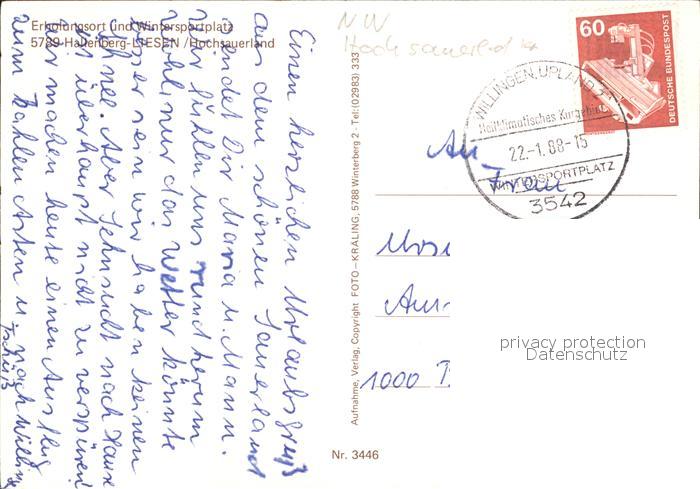 Erholungsort und Wintersportplatz
5789 Hallenberg-LIESEN /Hochsauerland
Einen herzlichen Urlaubsgruß
aus dem schönen Sauerland
sendet Dir Maria u. Mann.
Wir fühlen uns rundherum
wohl nur das Wetter könnte
besser sein wir haben keinen
Schnee. Aber Sehnsucht nach Hause
ist überhaupt nicht zu verspüren!
Wir machen heute einen Ausflug
zum Kahlen Asten u. nach Willing
Tschüß
Aufnahme, Verlag, Copyright FOTO-KRÄLING, 5788 Winterberg 2 - Tel: (02983) 333
Nr. 3446
NW
Hochsauerld
60
DEUTSCHE BUNDESPOST
WILLINGEN, UPLAND
Heilklimatisches Kurgebiet
22.-1.88-15
WINTERSPORTPLATZ
3542
An
Frau
1000
privacy protection
Datenschutz